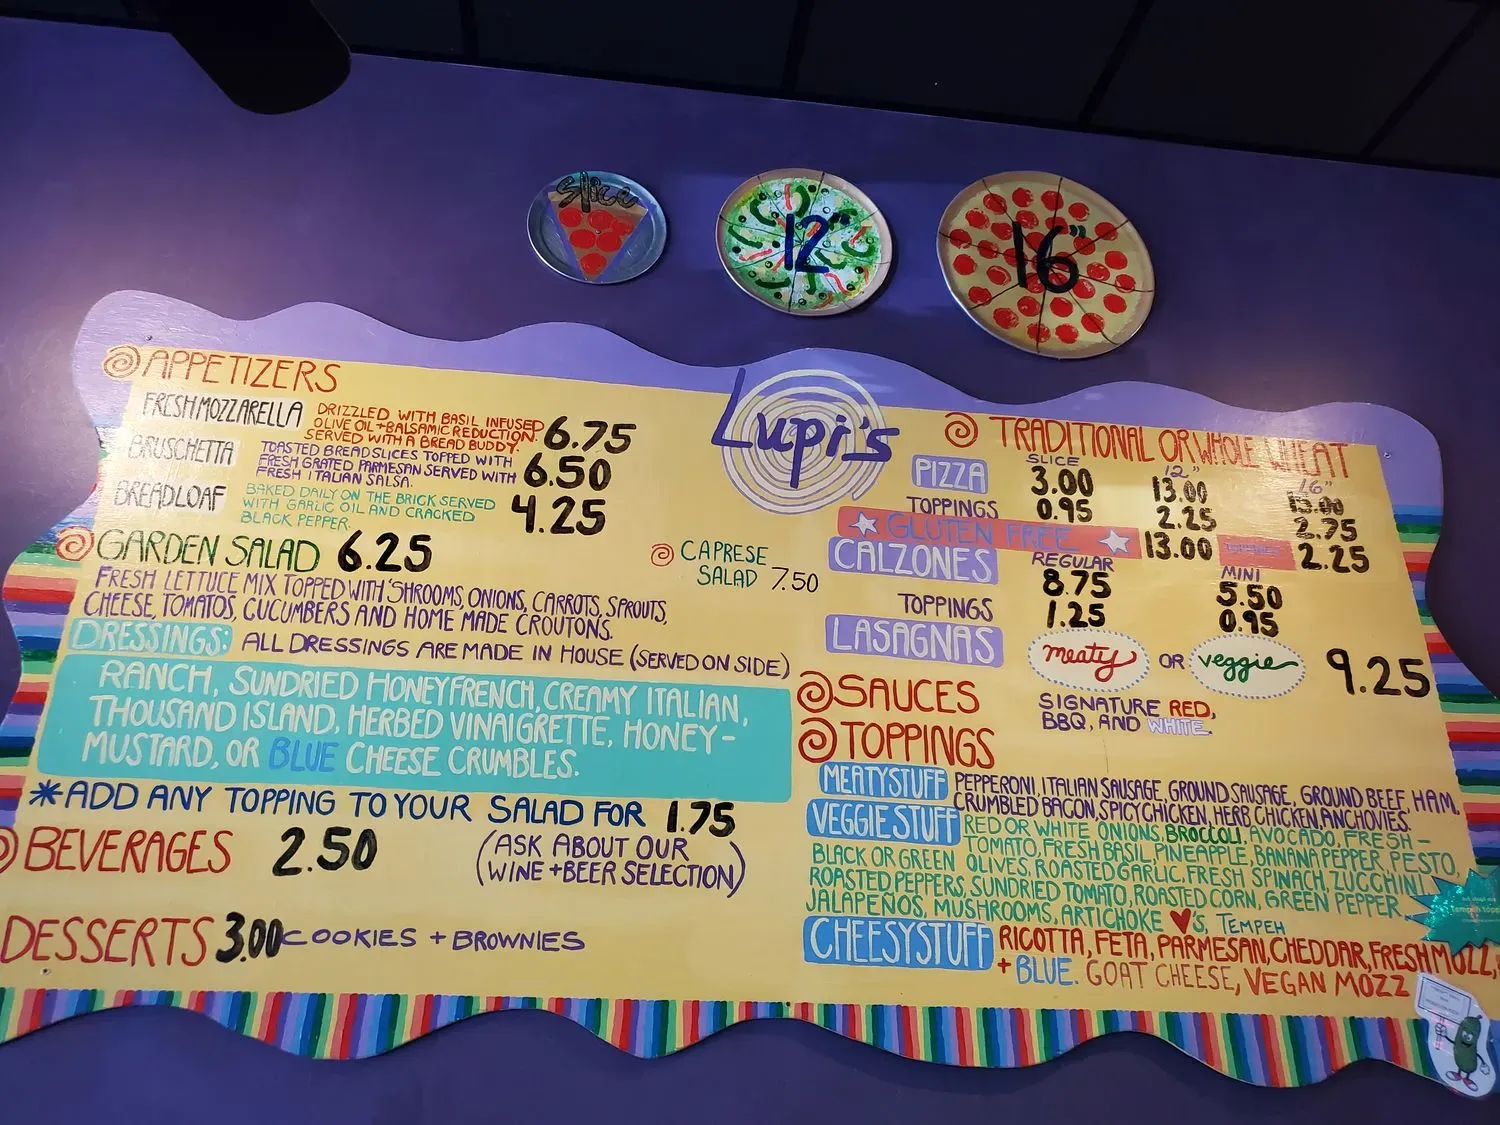 slice
12"
16"
Lupi's
APPETIZERS
FRESH MOZZARELLA
DRIZZLED WITH BASIL INFUSED
OLIVE OIL + BALSAMIC REDUCTION.
SERVED WITH A BREAD BUDDY.
6.75
BRUSCHETTA
TOASTED BREAD SLICES TOPPED WITH
FRESH GRATED PARMESAN SERVED WITH
FRESH ITALIAN SALSA.
6.50
BREADLOAF
BAKED DAILY ON THE BRICK SERVED
WITH GARLIC OIL AND CRACKED
BLACK PEPPER.
4.25
GARDEN SALAD 6.25
FRESH LETTUCE MIX TOPPED WITH 'SHROOMS, ONIONS, CARROTS, SPROUTS,
CHEESE, TOMATOS, CUCUMBERS AND HOME MADE CROUTONS.
CAPRESE
SALAD 7.50
DRESSINGS: ALL DRESSINGS ARE MADE IN HOUSE (SERVED ON SIDE)
RANCH, SUNDRIED HONEY FRENCH, CREAMY ITALIAN,
THOUSAND ISLAND, HERBED VINAIGRETTE, HONEY-
MUSTARD, OR BLUE CHEESE CRUMBLES.
*ADD ANY TOPPING TO YOUR SALAD FOR 1.75
BEVERAGES 2.50
(ASK ABOUT OUR
WINE + BEER SELECTION)
DESSERTS 3.00 COOKIES + BROWNIES
TRADITIONAL OR WHOLE WHEAT
SLICE 12" 16"
PIZZA 3.00 13.00 15.00
TOPPINGS 0.95 2.25 2.75
GLUTEN FREE 13.00 TOPPINGS 2.25
REGULAR MINI
CALZONES 8.75 5.50
TOPPINGS 1.25 0.95
LASAGNAS meaty OR veggie 9.25
SAUCES
SIGNATURE RED,
BBQ, AND WHITE.
TOPPINGS
MEATYSTUFF PEPPERONI, ITALIAN SAUSAGE, GROUND SAUSAGE, GROUND BEEF, HAM,
CRUMBLED BACON, SPICY CHICKEN, HERB CHICKEN ANCHOVIES.
VEGGIE STUFF RED OR WHITE ONIONS, BROCCOLI, AVOCADO, FRESH-
TOMATO, FRESH BASIL, PINEAPPLE, BANANA PEPPER, PESTO,
BLACK OR GREEN OLIVES, ROASTED GARLIC, FRESH SPINACH, ZUCCHINI
ROASTED PEPPERS, SUNDRIED TOMATO, ROASTED CORN, GREEN PEPPER
JALAPEÑOS, MUSHROOMS, ARTICHOKE ♥'S, TEMPEH
CHEESYSTUFF RICOTTA, FETA, PARMESAN, CHEDDAR, FRESH MOZZ,
+ BLUE. GOAT CHEESE, VEGAN MOZZ